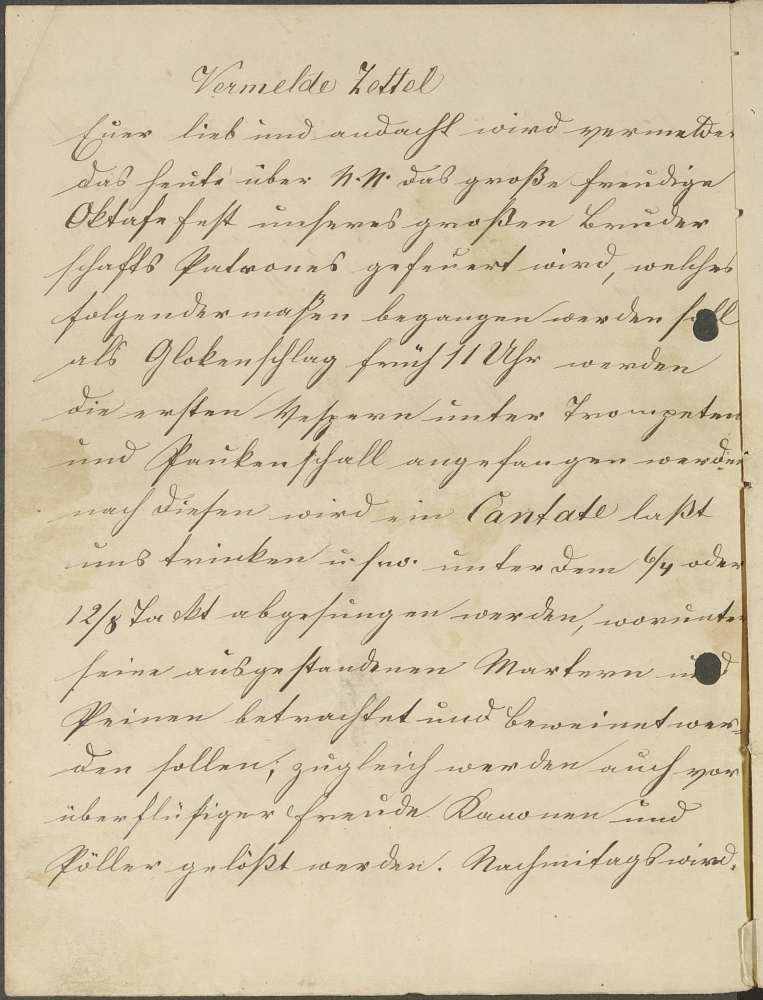 Vermelde Zettel
Euer lieb und andacht wird vermeldet
das heute über N.N. das große freudige
Oktafe fest unseres großen Bruder
schafts Patrones gefeuert wird, welches
folgendermaßen begangen werden soll
als Glokenschlag früh 11 Uhr werden
die ersten Vespern unter Trompeten
und Paukenschall angefangen werden
nach diesen wird ein Cantate laßt
uns trinken u.s.w. unter dem 6/4 oder
12/8 Tackt abgesungen werden, worunter
seine ausgestandenen Martern und
Peinen betrachtet und beweinet wer=
den sollen; zugleich werden auch vor
überflüßiger Freude Kanonen und
Pöller gelößt werden. Nachmitags wird.